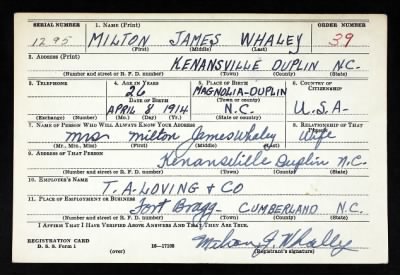 SERIAL NUMBER 1. NAME (Print) ORDER NUMBER
1295 MILTON JAMES WHALEY 39
(First) (Middle) (Last)
2. ADDRESS (Print)
KENANSVILLE DUPLIN N.C.
(Number and street or R. F. D. number) (Town) (County) (State)
3. TELEPHONE 4. AGE IN YEARS 5. PLACE OF BIRTH 6. COUNTRY OF CITIZENSHIP
26 MAGNOLIA-DUPLIN
DATE OF BIRTH (Town or county)
APRIL 8 1914 N.C. U.S.A-
(Exchange) (Number) (Mo.) (Day) (Yr.) (State or country)
7. NAME OF PERSON WHO WILL ALWAYS KNOW YOUR ADDRESS 8. RELATIONSHIP OF THAT PERSON
Mrs Milton James Whaley Wife
(Mr., Mrs., Miss) (First) (Middle) (Last)
9. ADDRESS OF THAT PERSON
Kenansville Duplin N.C.
(Number and street or R. F. D. number) (Town) (County) (State)
10. EMPLOYER'S NAME
T. A. LOVING + CO
11. PLACE OF EMPLOYMENT OR BUSINESS
Fort Bragg CUMBERLAND N.C.
(Number and street or R. F. D. number) (Town) (County) (State)
I AFFIRM THAT I HAVE VERIFIED ABOVE ANSWERS AND THAT THEY ARE TRUE.
REGISTRATION CARD
D. S. S. Form 1 (over) 16—17105 (Registrant's signature)